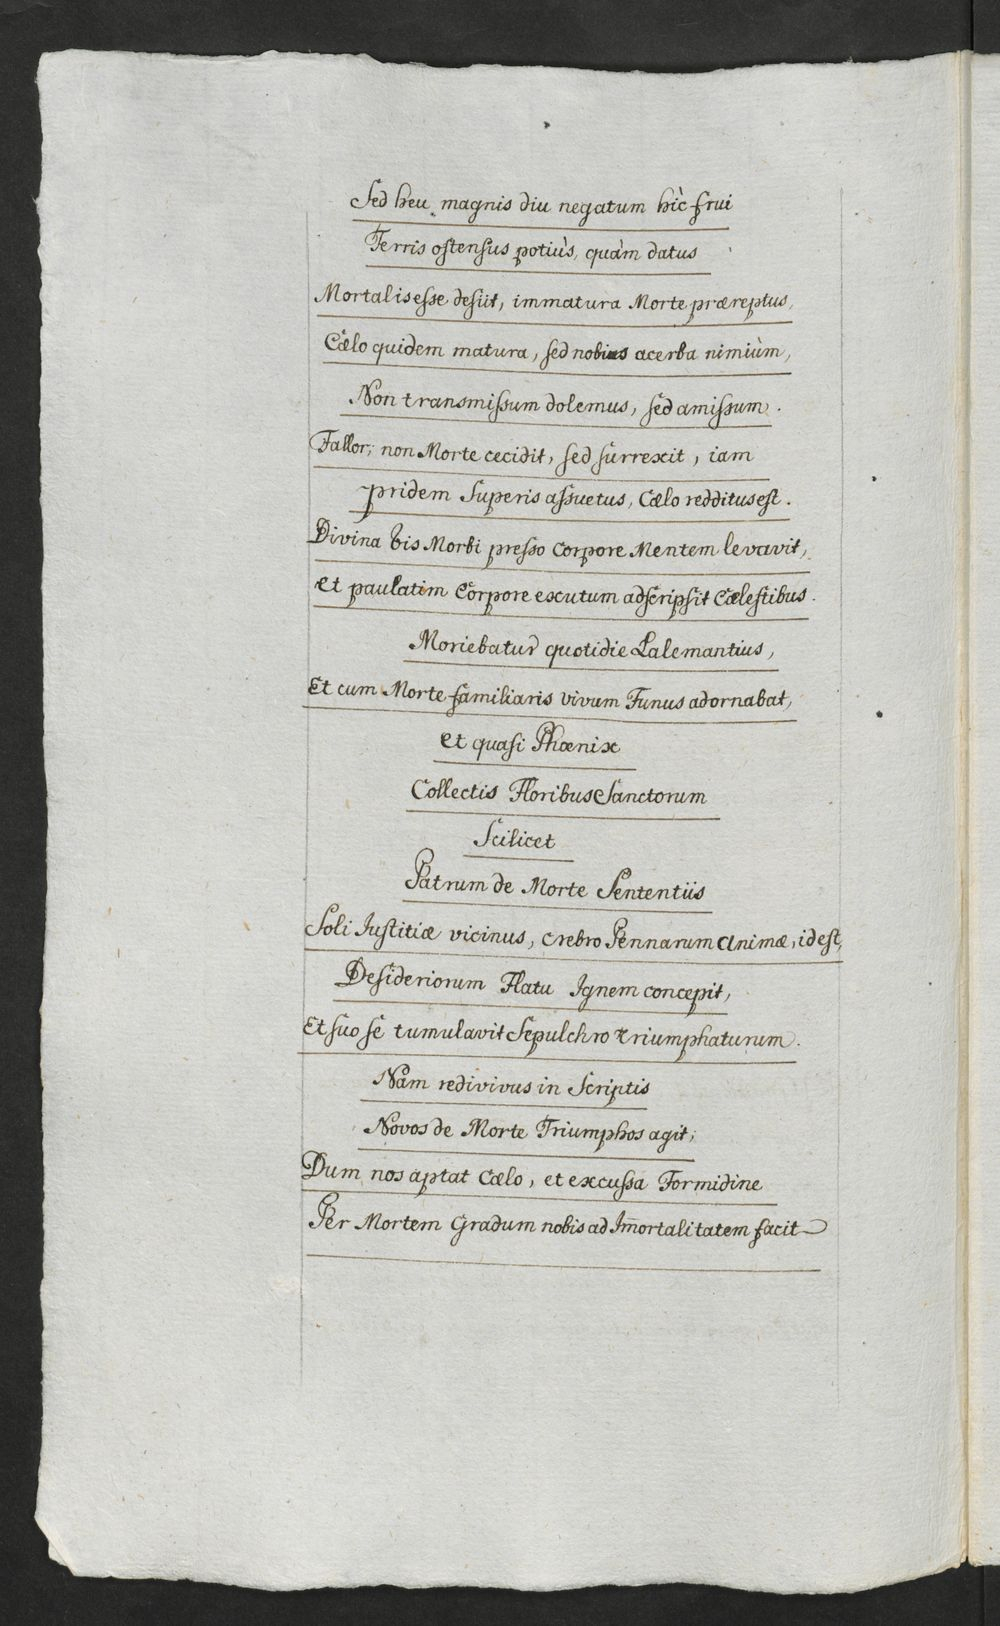 Sed heu magnis diu negatum hìc frui
Terris ostensus potiùs, quàm datus
Mortalis esse desiit, immatura Morte præreptus,
Cælo quidem matura, sed nobis acerba nimiùm,
Non transmissum dolemus, sed amissum.
Fallor; non Morte cecidit, sed surrexit, iam
pridem Superis assuetus, Cælo redditus est.
Divina vis Morbi presso Corpore Mentem levavit,
et paulatim Corpore exutum adscripsit Cælestibus.
Moriebatur quotidie Lalemantius,
Et cum Morte familiaris vivum Funus adornabat,
et quasi Phœnix
Collectis Floribus Sanctorum
Scilicet
Patrum de Morte Sententiis
Soli Iustitiæ vicinus, crebro Pennarum animæ, id est,
Desideriorum Flatu Ignem concepit,
Et suo se tumulavit Sepulchro triumphaturum.
Nam redivivus in Scriptis
Novos de Morte Triumphos agit;
Dum nos aptat Cælo, et excussa Formidine
Per Mortem Gradum nobis ad Im̄ortalitatem facit